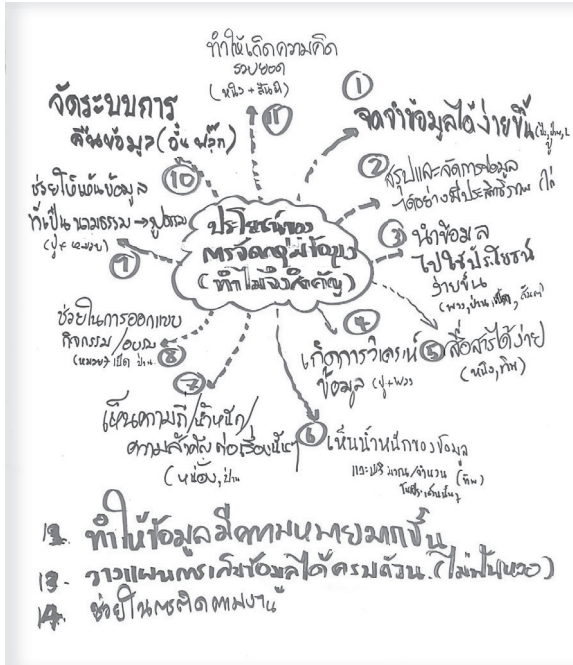 ประโยชน์ของ
การจัดกลุ่มข้อมูล
(ทำไมจึงสำคัญ)
①
จดจำข้อมูลได้ง่ายขึ้น
②
สรุปและจัดการข้อมูล
ได้อย่างมีประสิทธิภาพ
③ นำข้อมูล
ไปใช้ประโยชน์
ง่ายขึ้น
④
เกิดการวิเคราะห์
ข้อมูล (ปู+พวง
⑤ สื่อสารได้ง่าย
(หนิง, ทิพ)
⑥ เห็นน้ำหนักของข้อมูล
และปริมาณ/จำนวน (ทิพ)
ในประเด็นนั้นๆ
⑦
เห็นความถี่/น้ำหนัก/
ความสำคัญต่อเรื่องนั้นๆ
(หน่อง, ป่าน
ช่วยในการออกแบบ
กิจกรรม/อบรม
⑧
(หมวย, เป็ด ป่าน
ช่วยให้เห็นข้อมูล
ที่เป็นนามธรรม → รูปธรรม
(ปู+หมวย)
⑨
จัดระบบการ
คืนข้อมูล (อุ๋น ฟลุ๊ก)
⑩
ทำให้เกิดความคิด
รวบยอด
⑪
12. ทำให้ข้อมูลมีความหมายมากขึ้น
13. วางแผนการเก็บข้อมูลได้ครบถ้วน. (ไม่ฟันหลอ)
14. ช่วยในการติดตามงาน